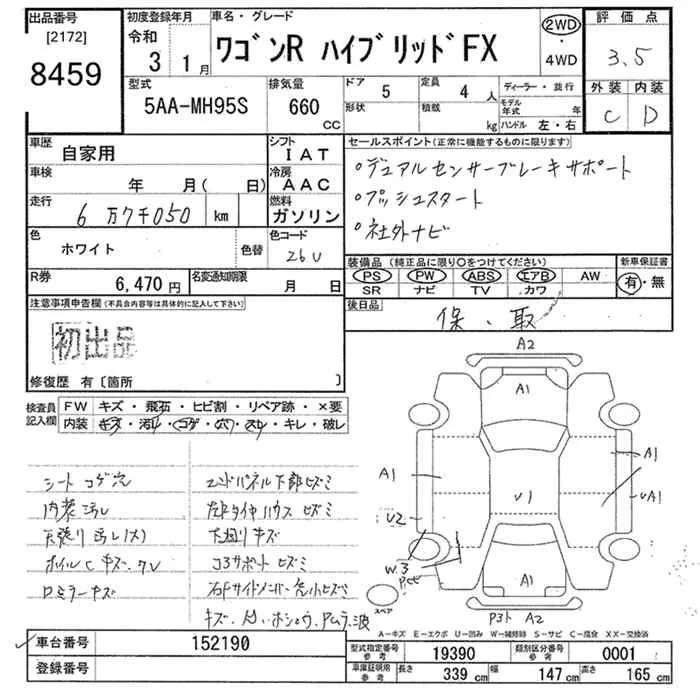 出品番号 [2172] 8459
初度登録年月 令和 3年 1月
車名・グレード ワゴンR ハイブリッドFX
2WD・4WD
評価点 3.5
外装 C 内装 D
型式 5AA-MH95S
排気量 660 CC
ドア 5 形状
定員 4人 積載 kg
ディーラー・並行
モデル年式 年
ハンドル 左・右
車歴 自家用
シフト IAT
車検 年 月( 日)
冷房 AAC
走行 6万7千050 km
燃料 ガソリン
色 ホワイト 色替
色コード 26U
R券 6,470円
名変通知期限 月 日
セールスポイント(正常に機能するものに限ります)
○デュアルセンサーブレーキサポート
○プッシュスタート
○社外ナビ
装備品(純正品に限り○をつけてください)
PS PW ABS エアB AW
SR ナビ TV カワ
新車保証書 有・無
後日品 保、取
注意事項申告欄(不具合内容等は具体的に記入して下さい)
初出品
修復歴 有〔箇所 〕
検査員記入欄
FW キズ・飛石・ヒビ割・リペア跡・×要
内装 キズ・汚レ・コゲ・穴・スレ・キレ・破レ
シート コゲ穴
内装汚レ
天張り汚レ(大)
ホイルCキズ、
ロミラーキズ
エンドパネル下部ヒズミ
左Rタイヤハウス ヒズミ
下廻りキズ
コアサポート ヒズミ
A2
A1
A1
A1
V1
U2
W3
A1
スペア
A2
A-キズ E-エクボ U-凹み W-補修跡 S-サビ C-腐食 XX-交換済
車台番号 152190
登録番号
型式指定番号 参考 19390
類別区分番号 参考 0001
車庫証明用 参考 長さ 339 cm 幅 147 cm 高さ 165 cm